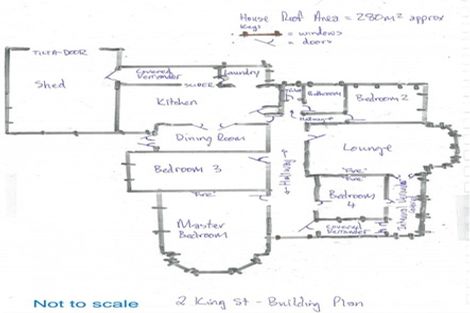 House Roof Area = 280m² approx
Keys
= windows
= doors
TILTA-DOOR
Shed
Covered Verrander
Laundry
SLIDER
Kitchen
Bathroom
Bedroom 2
Hallway
Dining Room
Lounge
Bedroom 3
Hallway
"Fire"
"Fire"
"Fire"
Bedroom 4
Master Bedroom
Covered Verrander
Not to scale
2 King St - Building Plan